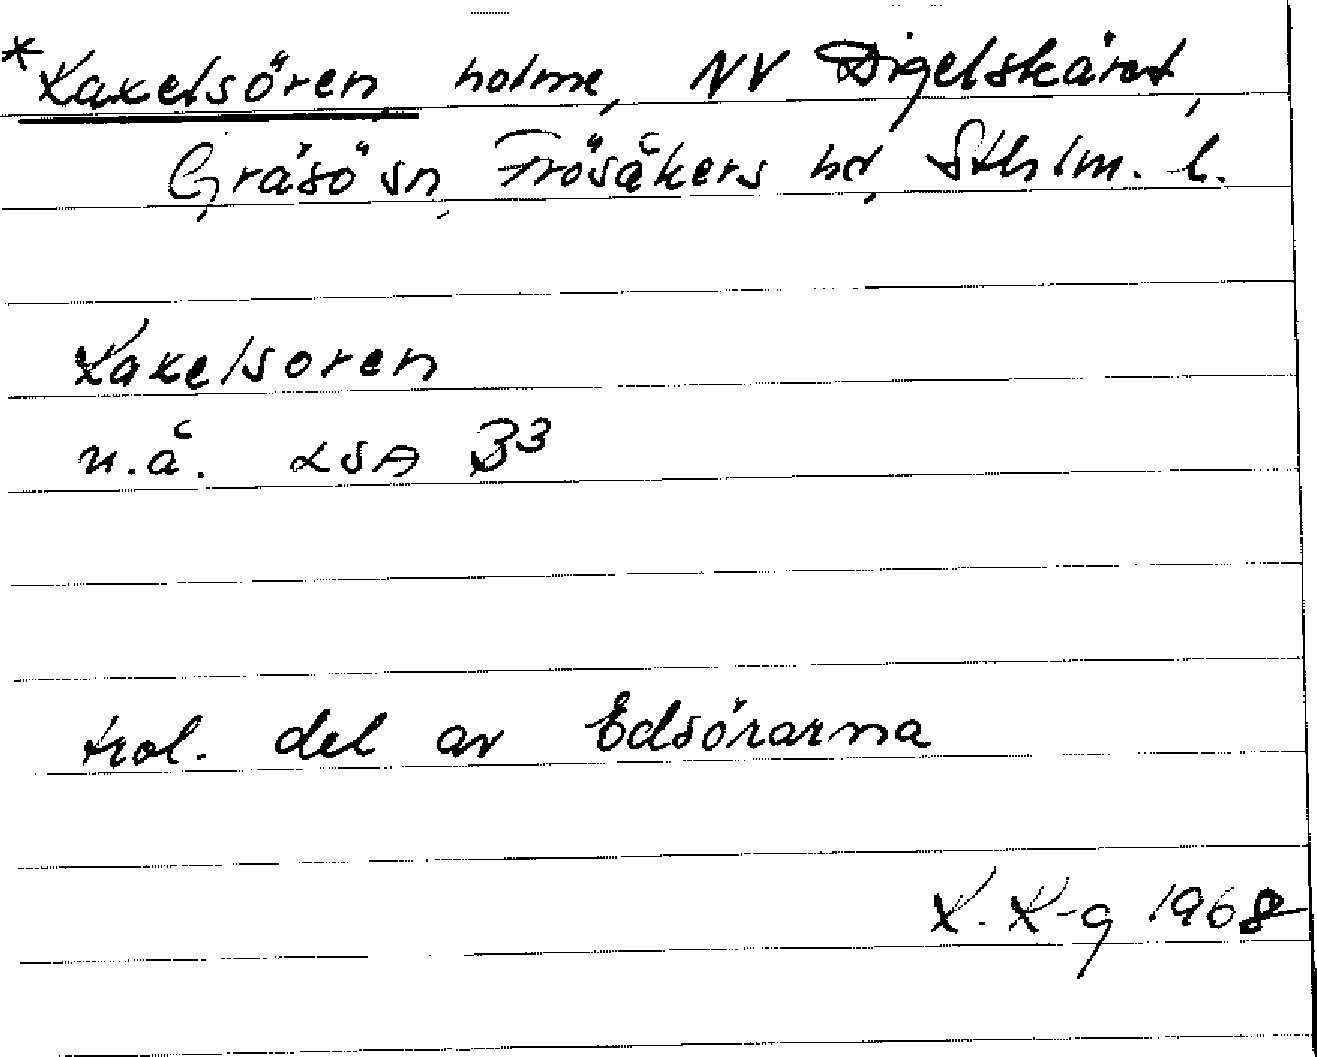 *Kakelsören, holme, NV Digelskäret,
Gräsö sn, Frösåkers hd, Sthlm. l.
Kakelsoren
u.å. LSA B3
trol. del av Edsörarna
K. K-g 1968